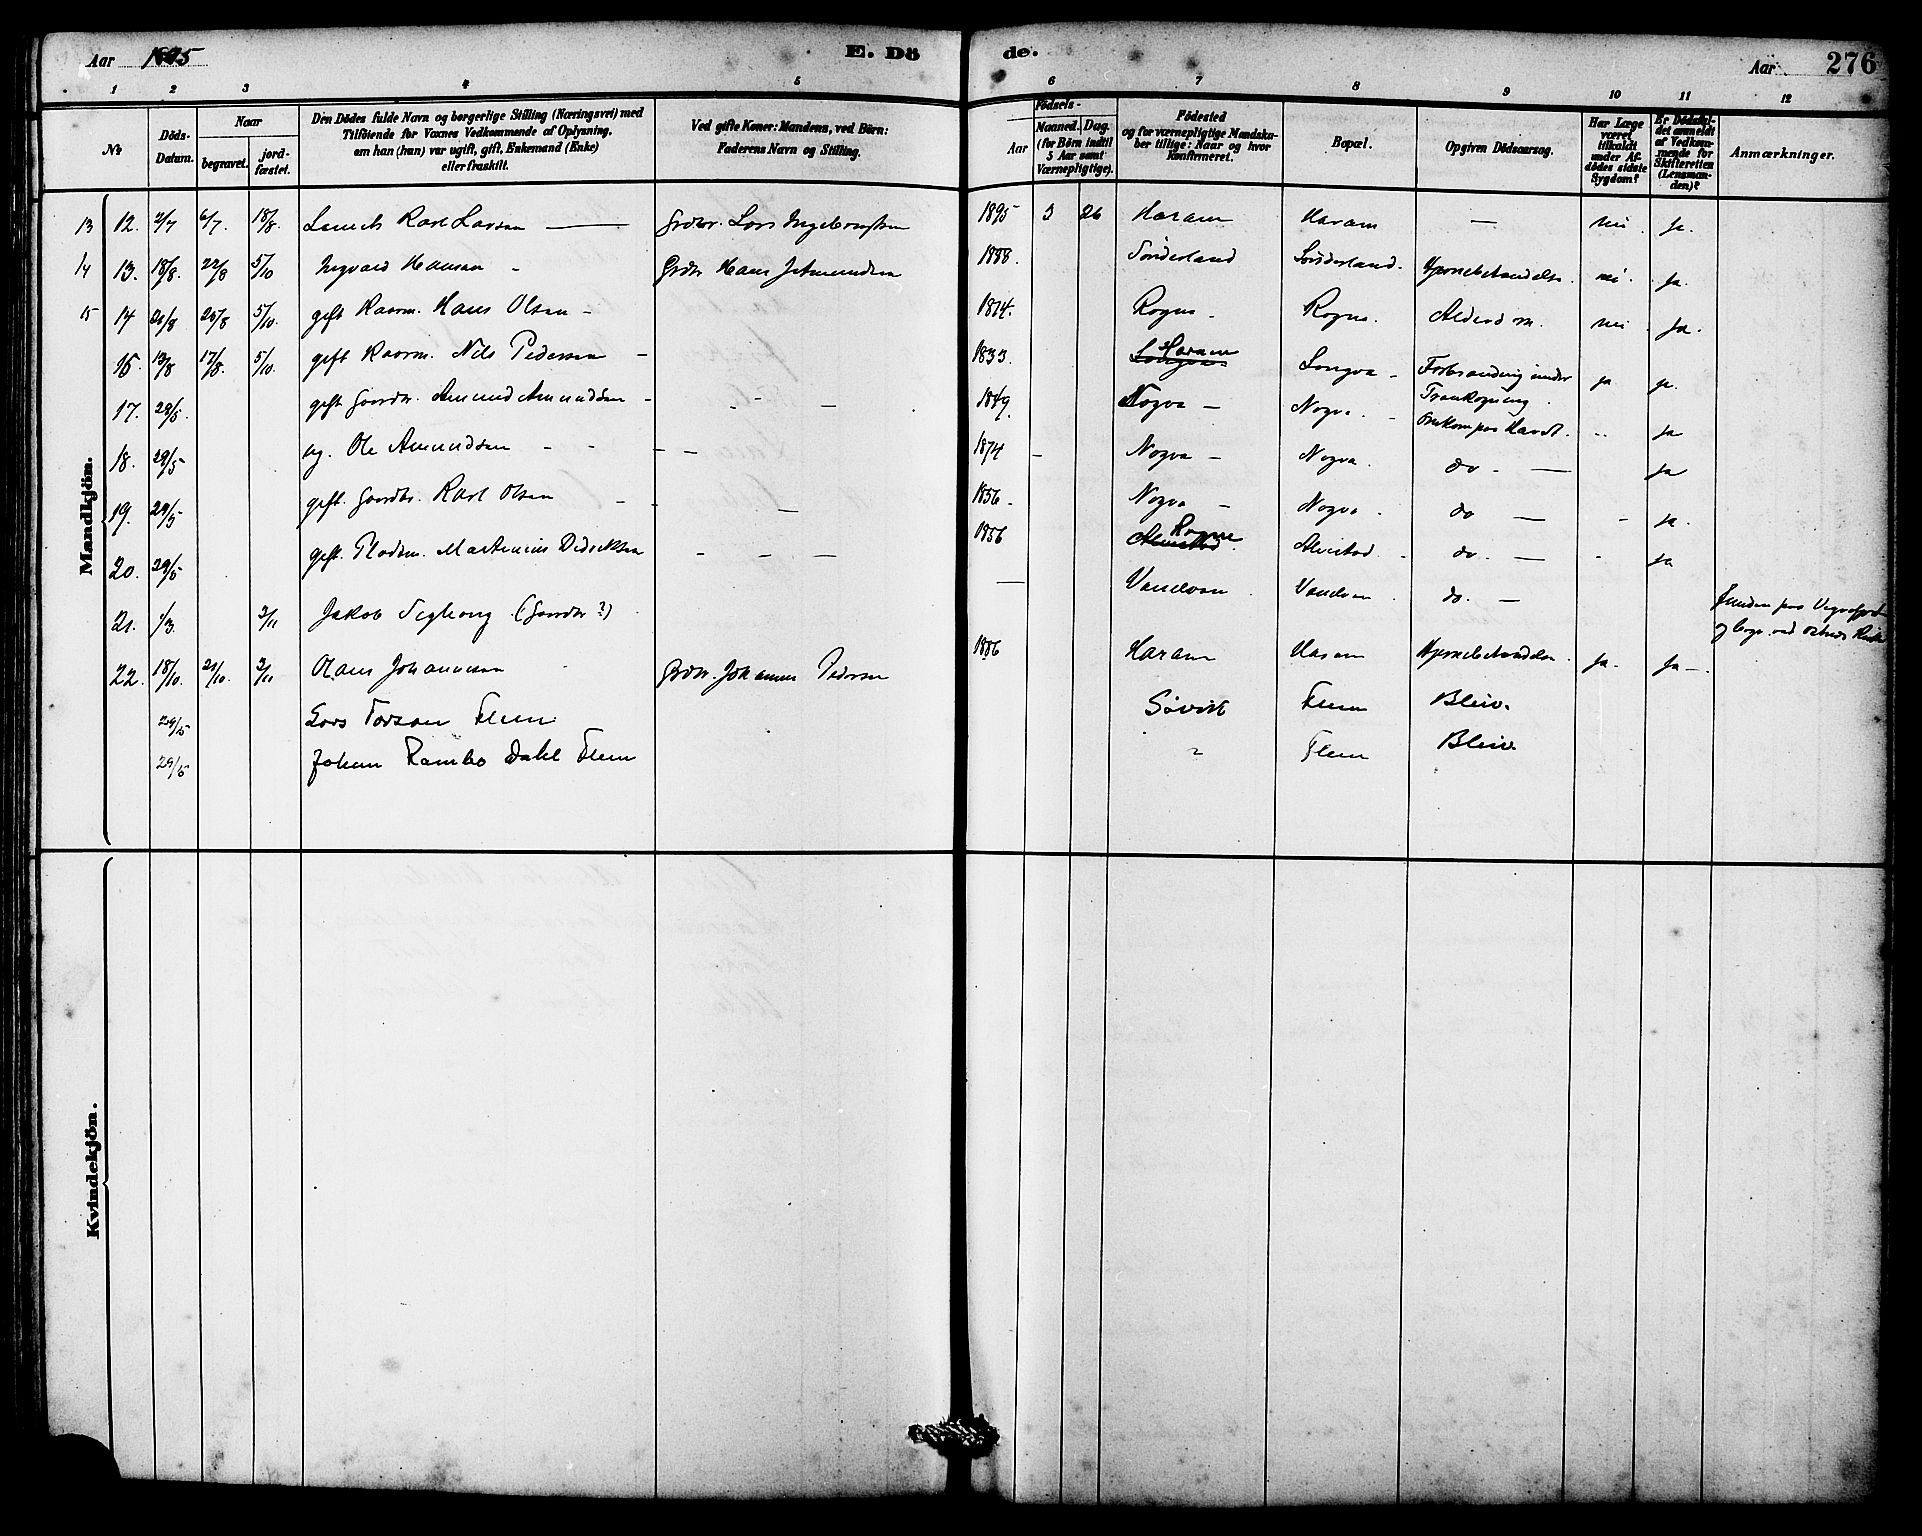 Aar 1895 E. Döde. Aar 276
1 2 3 4 5 6 7 8 9 10 11 12
No
Döds-Datum.
Naar
begravet.
jord-fæstet.
Den Dödes fulde Navn og borgerlige Stilling (Næringsvei) med
Tilföiende for Voxnes Vedkommende af Oplysning,
om han (hun) var ugift, gift, Enkemand (Enke)
eller fraskilt.
Ved gifte Koner: Mandens, ved Börn:
Faderens Navn og Stilling.
Födsels-
Aar
Maaned. Dag.
(for Börn indtil
5 Aar samt
Værnepligtige).
Födested
og for værnepligtige Mandska-
ber tillige: Naar og hvor
Konfirmeret.
Bopæl.
Opgiven Dödsaarsag.
Har Læge
været
tilkaldt
under Af-
dödes sidste
Sygdom?
Er Dödsfal-
det anmeldt
af Vedkom-
mende for
Skifteretten
(Lensman-
den)?
Anmærkninger.
Mandkjön.
13 12. 2/7 6/7. 18/8. Karl Larsen — Grdbr. Lars Ingebrigtsen 1895 3 26 Haram Haram — nei. ja.
14 13. 18/8. 22/8 5/10 Ingvald Hansen - Grdbr Hans 1888. Sönderland Sönderland. nei. ja.
15 14 21/8 5/10. gift Kaarm. Hans Olsen - 1814. Rogne. Rogne. Alderdom. nei ja.
16. 13/8 17/8. 5/10. gift Kaarm. Nils Pedersen - 1833. Longva Haram Longva - Forbrænding under Trankogning. ja ja.
17. 28/5. gift Gaardbr. Amund Amundsen - 1849. Nogva — Nogva. - Omkom paa Havet. - ja
18. 29/5 ug. Ole Amundsen - - 1874 - Nogva — Nogva. do. — ja
19. 29/5 gift. Gaardbr. Karl Olsen - 1856. Nogva - Nogva. do — - ja.
20. 29/5 gift. Pladsm. Martinius Didriksen - 1856 Alvestad Rogne. Alvestad. - do. — - ja
21. 1/3. 3/11 Jakob (Gaardbr?) — do. — Funden paa
22. 18/10. 21/10. 3/11 Olaus Johannesen - Grdbr. Johannes Pedersen 1886 Haram Haram Hjernebetændelse. ja. ja —.
29/5 Lars Flem Sövik Flem Bleiv.
29/5 Johan Rambo Dahl Flem " Flem Bleiv
Kvindekjön.